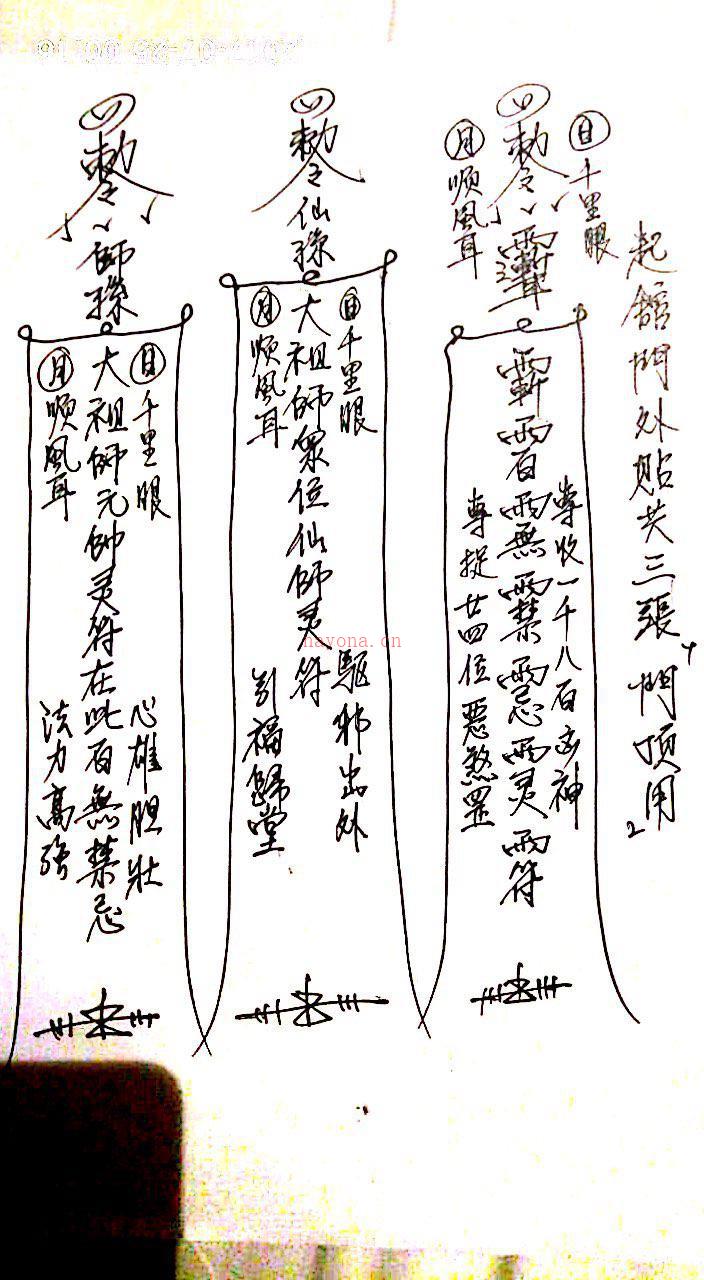 起館門外貼共三張門頂用
日千里眼
敕令
月順風耳
專收一千八百凶神
斬百無禁忌灵符
專捉廿四位惡煞罡
敕令仙
日千里眼
大祖師眾位仙師灵符
月順風耳
驅邪出外
引福歸堂
敕令師
日千里眼
大祖師元帥灵符在此百無禁忌
月順風耳
心雄胆壯
法力高強
nayona.cn